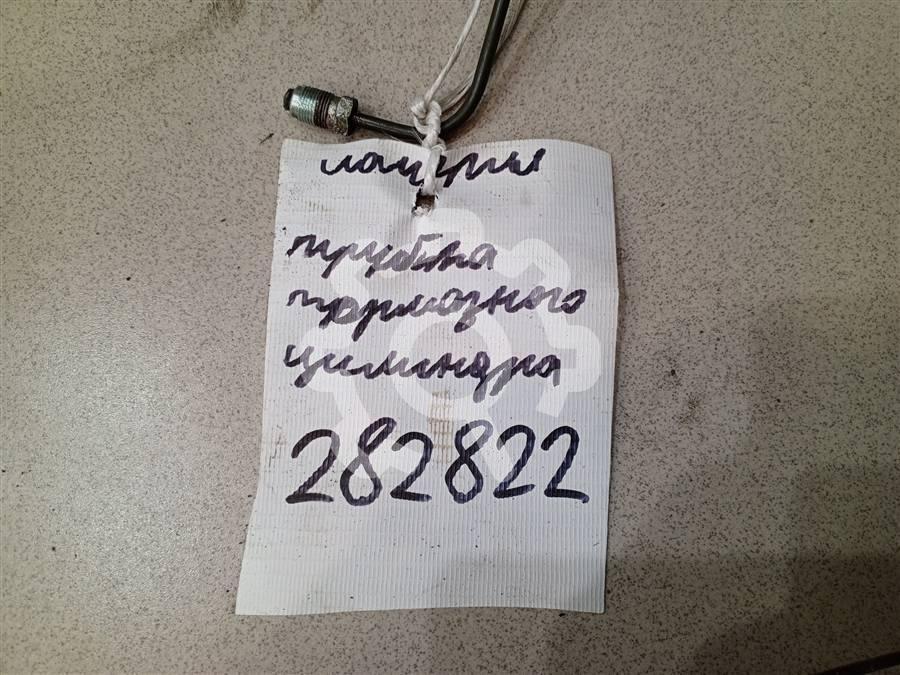 трубка
тормозного
цилиндра
282822